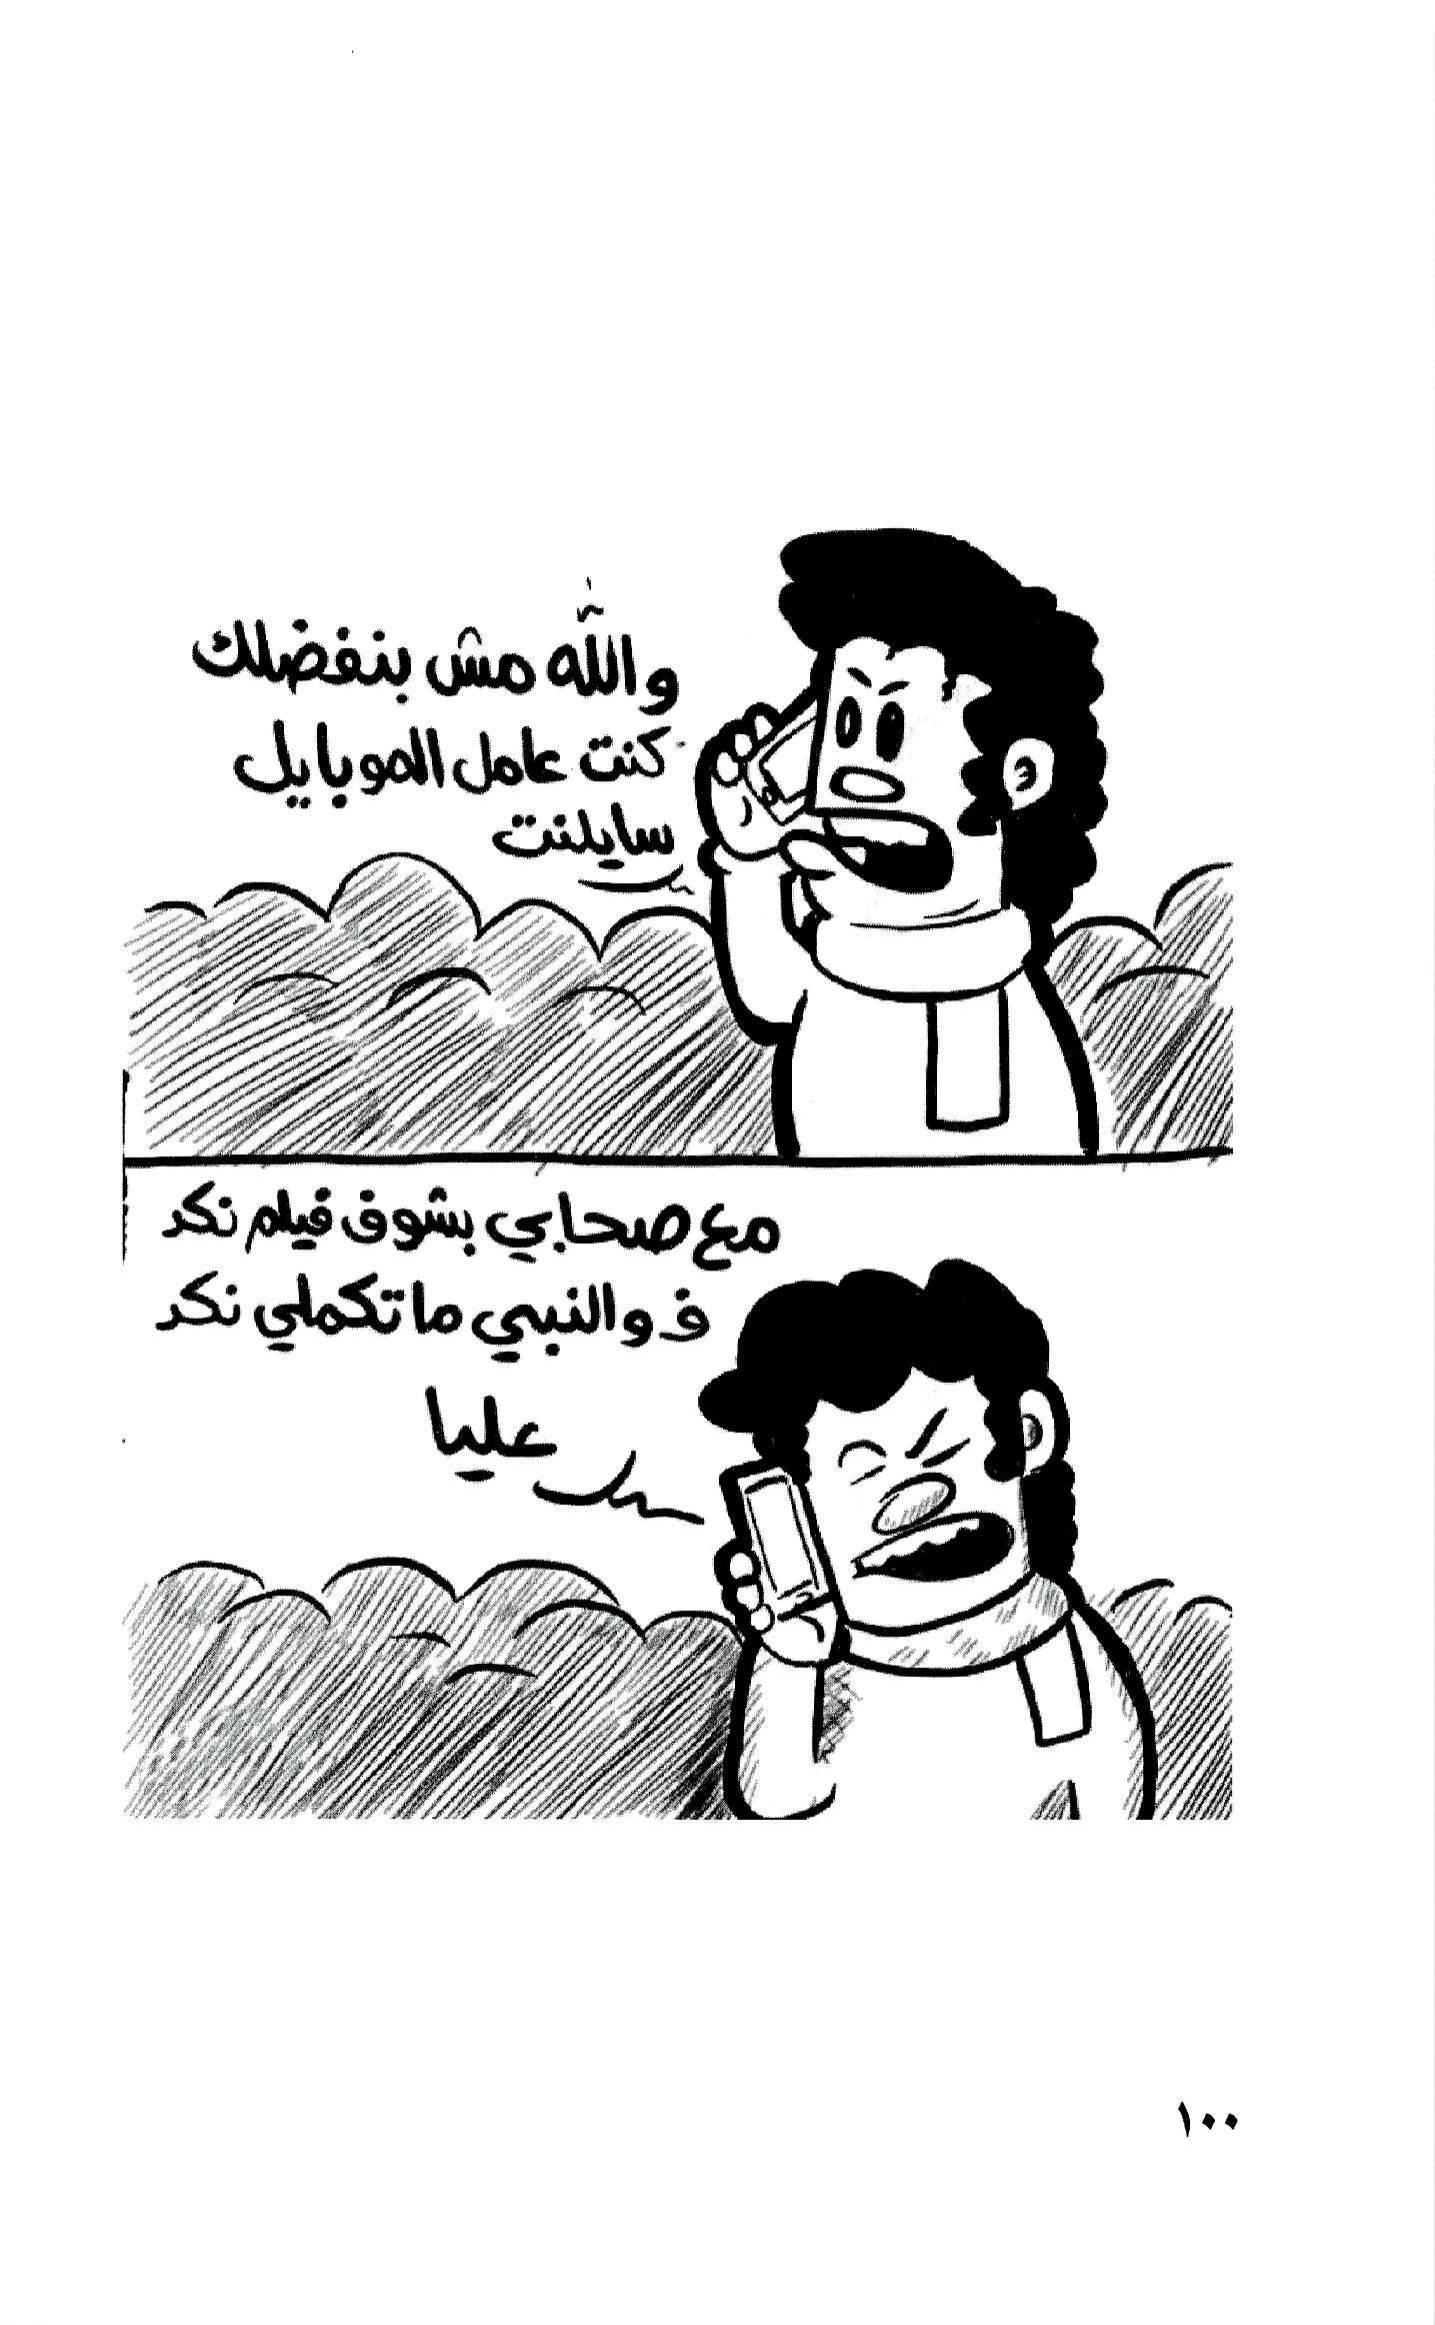 والله مش بنفضلك
كنت عامل الموبايل
سايلنت
مع صحابي بشوف فيلم نكد
ف والنبي ما تكملي نكد
عليا
١٠٠